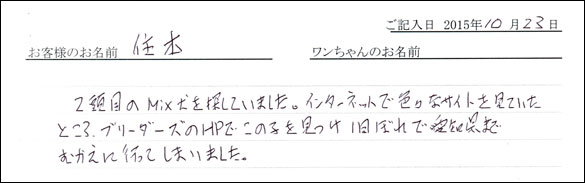 ご記入日 2015年10月23日
お客様のお名前 住本 ワンちゃんのお名前
2頭目のMix犬を探していました。インターネットで色々なサイトを見ていた
ところ、ブリーダーズのHPでこの子を見つけ1目ぼれで愛知県まで
むかえに行ってしまいました。